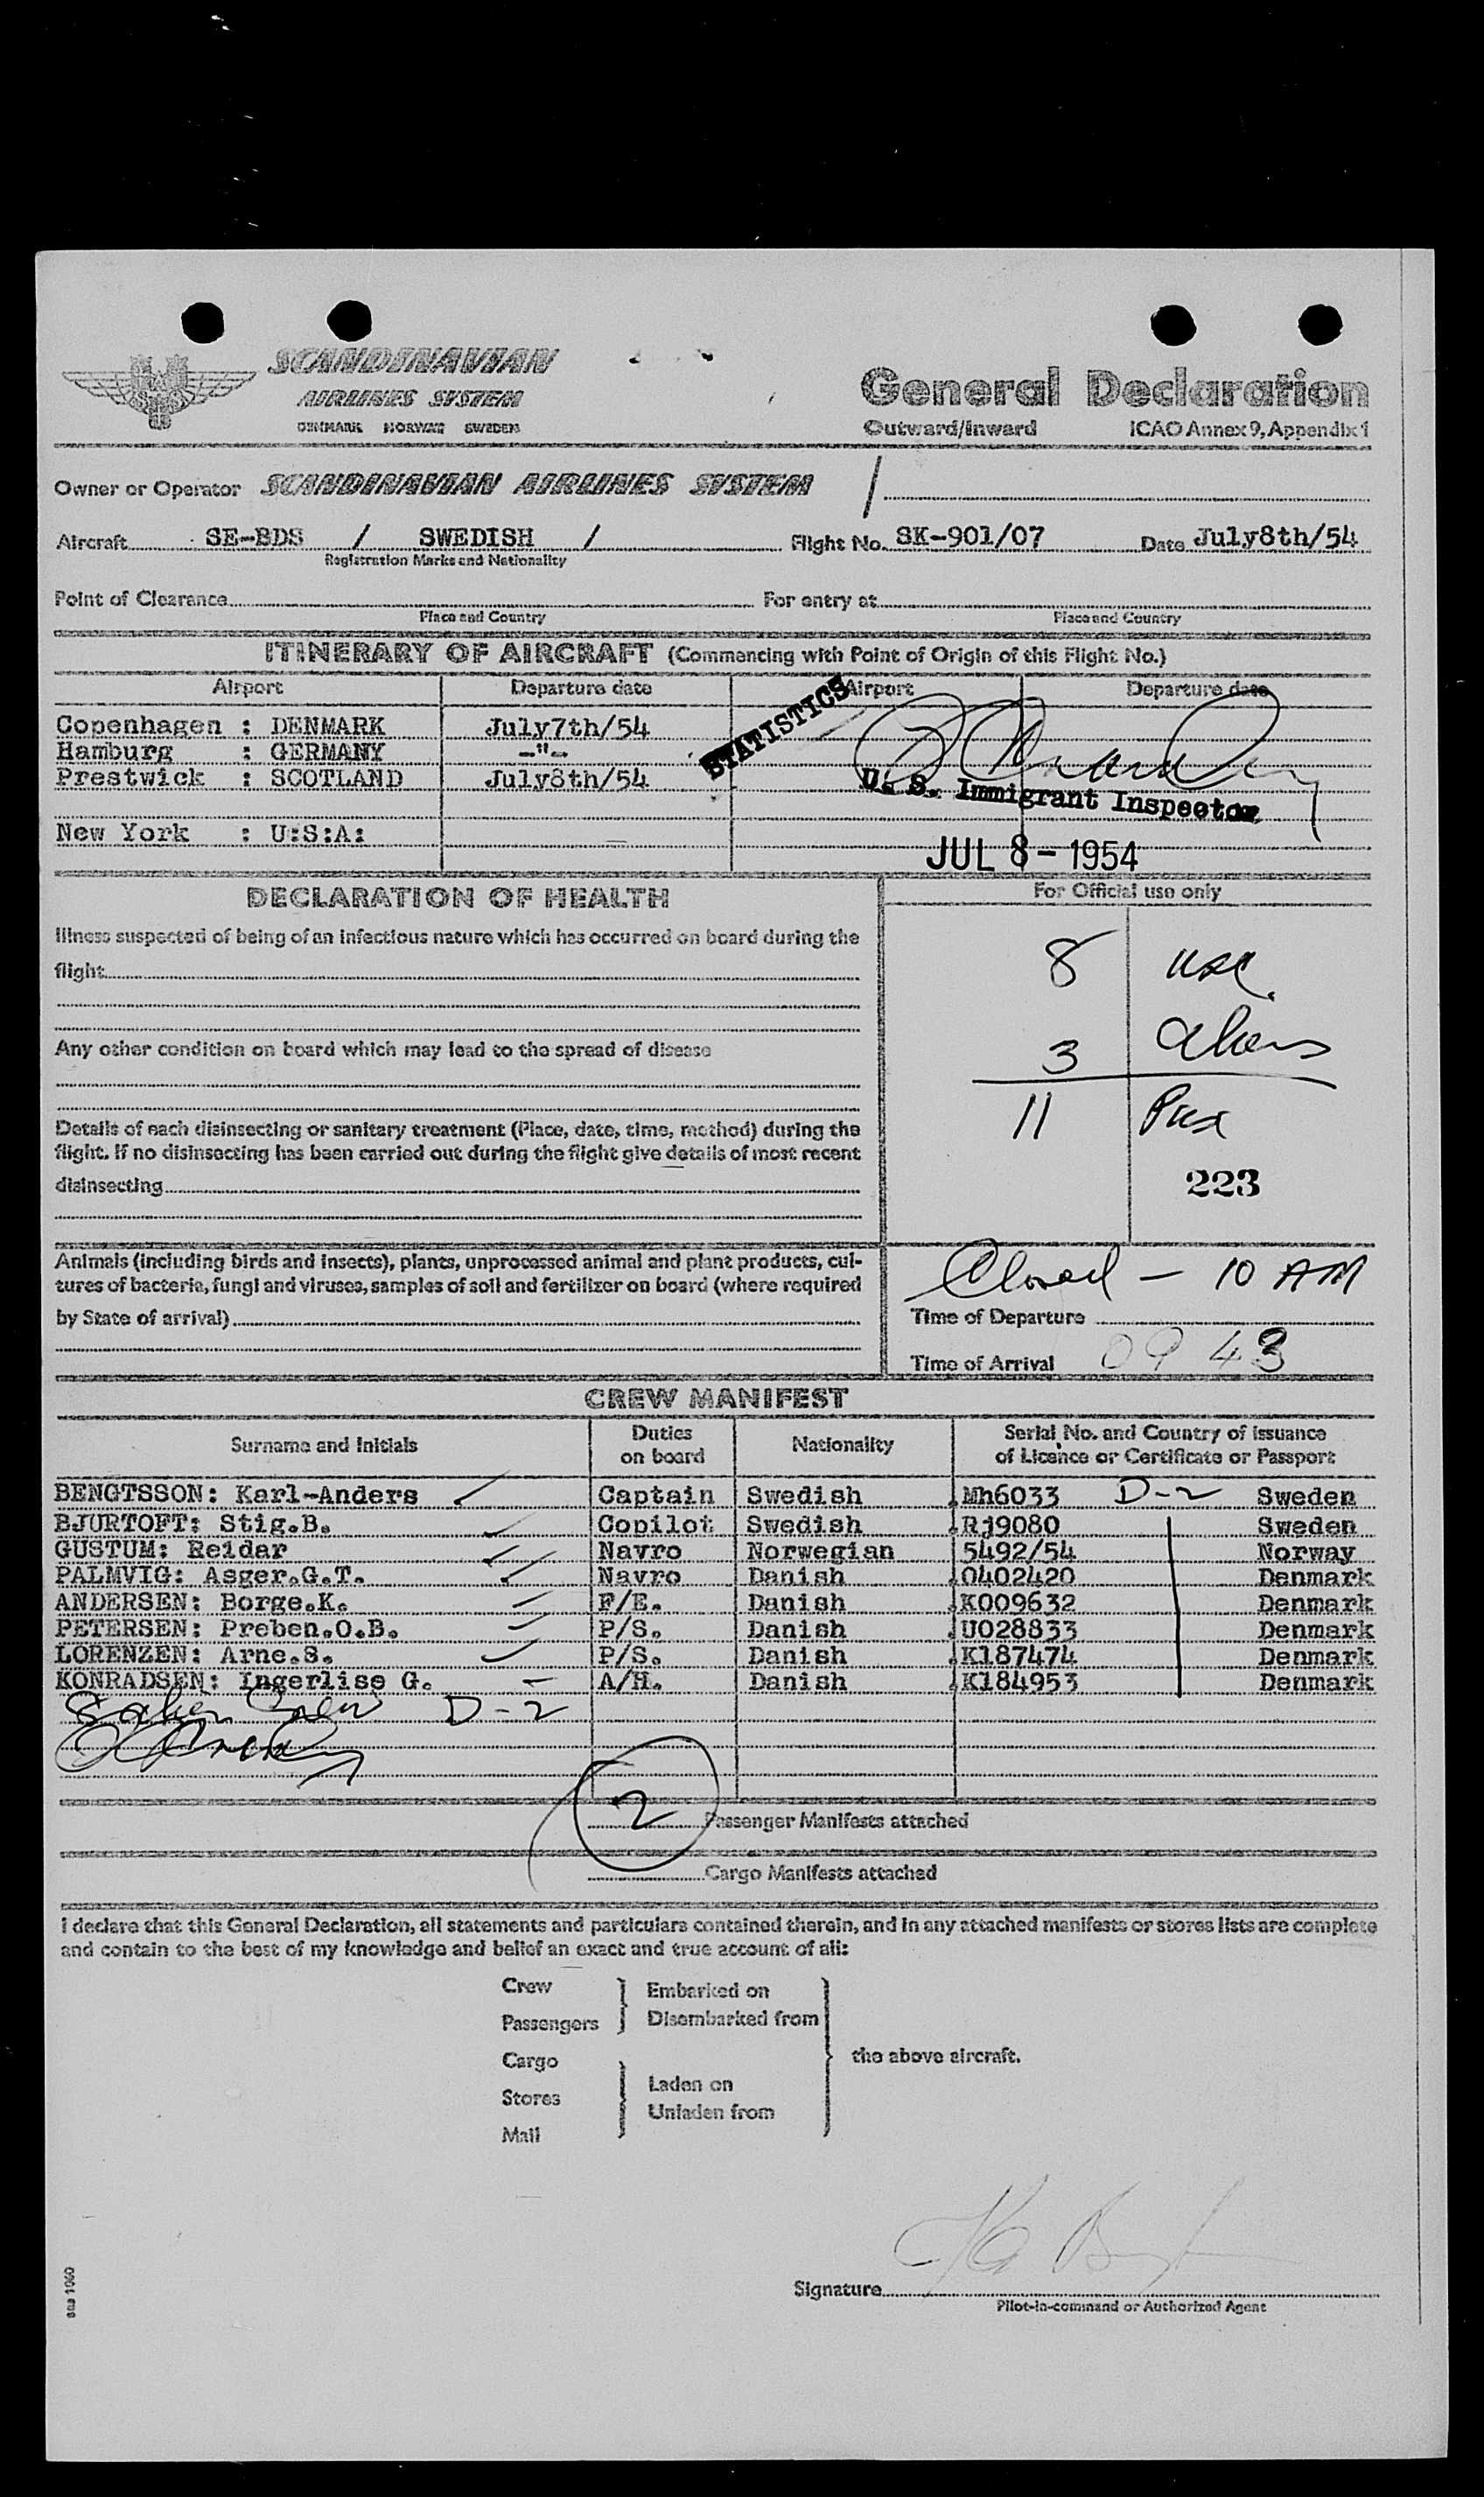 SCANDINAVIAN
AIRLINES SYSTEM
DENMARK NORWAY SWEDEN
General Declaration
Outward/Inward ICAO Annex 9, Appendix 1
Owner or Operator SCANDINAVIAN AIRLINES SYSTEM /
Aircraft SE-BDS / SWEDISH / Flight No. SK-901/07 Date July8th/54
Registration Marks and Nationality
Point of Clearance For entry at
Place and Country Place and Country
ITINERARY OF AIRCRAFT (Commencing with Point of Origin of this Flight No.)
Airport Departure date Airport Departure date
STATISTICS
Copenhagen : DENMARK July7th/54
Hamburg : GERMANY -"-
Prestwick : SCOTLAND July8th/54
U. S. Immigrant Inspector
New York : U:S:A:
JUL 8 - 1954
DECLARATION OF HEALTH
For Official use only
Illness suspected of being of an infectious nature which has occurred on board during the
flight
8 usc.
Any other condition on board which may lead to the spread of disease
3 aliens
11 Pax
Details of each disinsecting or sanitary treatment (Place, date, time, method) during the
flight. If no disinsecting has been carried out during the flight give details of most recent
disinsecting
223
Animals (including birds and insects), plants, unprocessed animal and plant products, cul-
tures of bacteria, fungi and viruses, samples of soil and fertilizer on board (where required
by State of arrival)
Closed - 10 AM
Time of Departure
Time of Arrival 09 43
CREW MANIFEST
Surname and Initials Duties on board Nationality Serial No. and Country of Issuance of Licence or Certificate or Passport
BENGTSSON: Karl-Anders Captain Swedish Mh6033 D-2 Sweden
BJURTOFT: Stig.B. Copilot Swedish Rj9080 Sweden
GUSTUM: Reidar Navro Norwegian 5492/54 Norway
PALMVIG: Asger.G.T. Navro Danish 0402420 Denmark
ANDERSEN: Borge.K. F/E. Danish K009632 Denmark
PETERSEN: Preben.O.B. P/S. Danish U028833 Denmark
LORENZEN: Arne.S. P/S. Danish K187474 Denmark
KONRADSEN: Ingerlise G. A/H. Danish K184953 Denmark
D-2
2 Passenger Manifests attached
Cargo Manifests attached
I declare that this General Declaration, all statements and particulars contained therein, and in any attached manifests or stores lists are complete
and contain to the best of my knowledge and belief an exact and true account of all:
Crew Embarked on
Passengers Disembarked from
Cargo the above aircraft.
Stores Laden on
Unladen from
Mail
Signature
Pilot-in-command or Authorized Agent
sas 1060